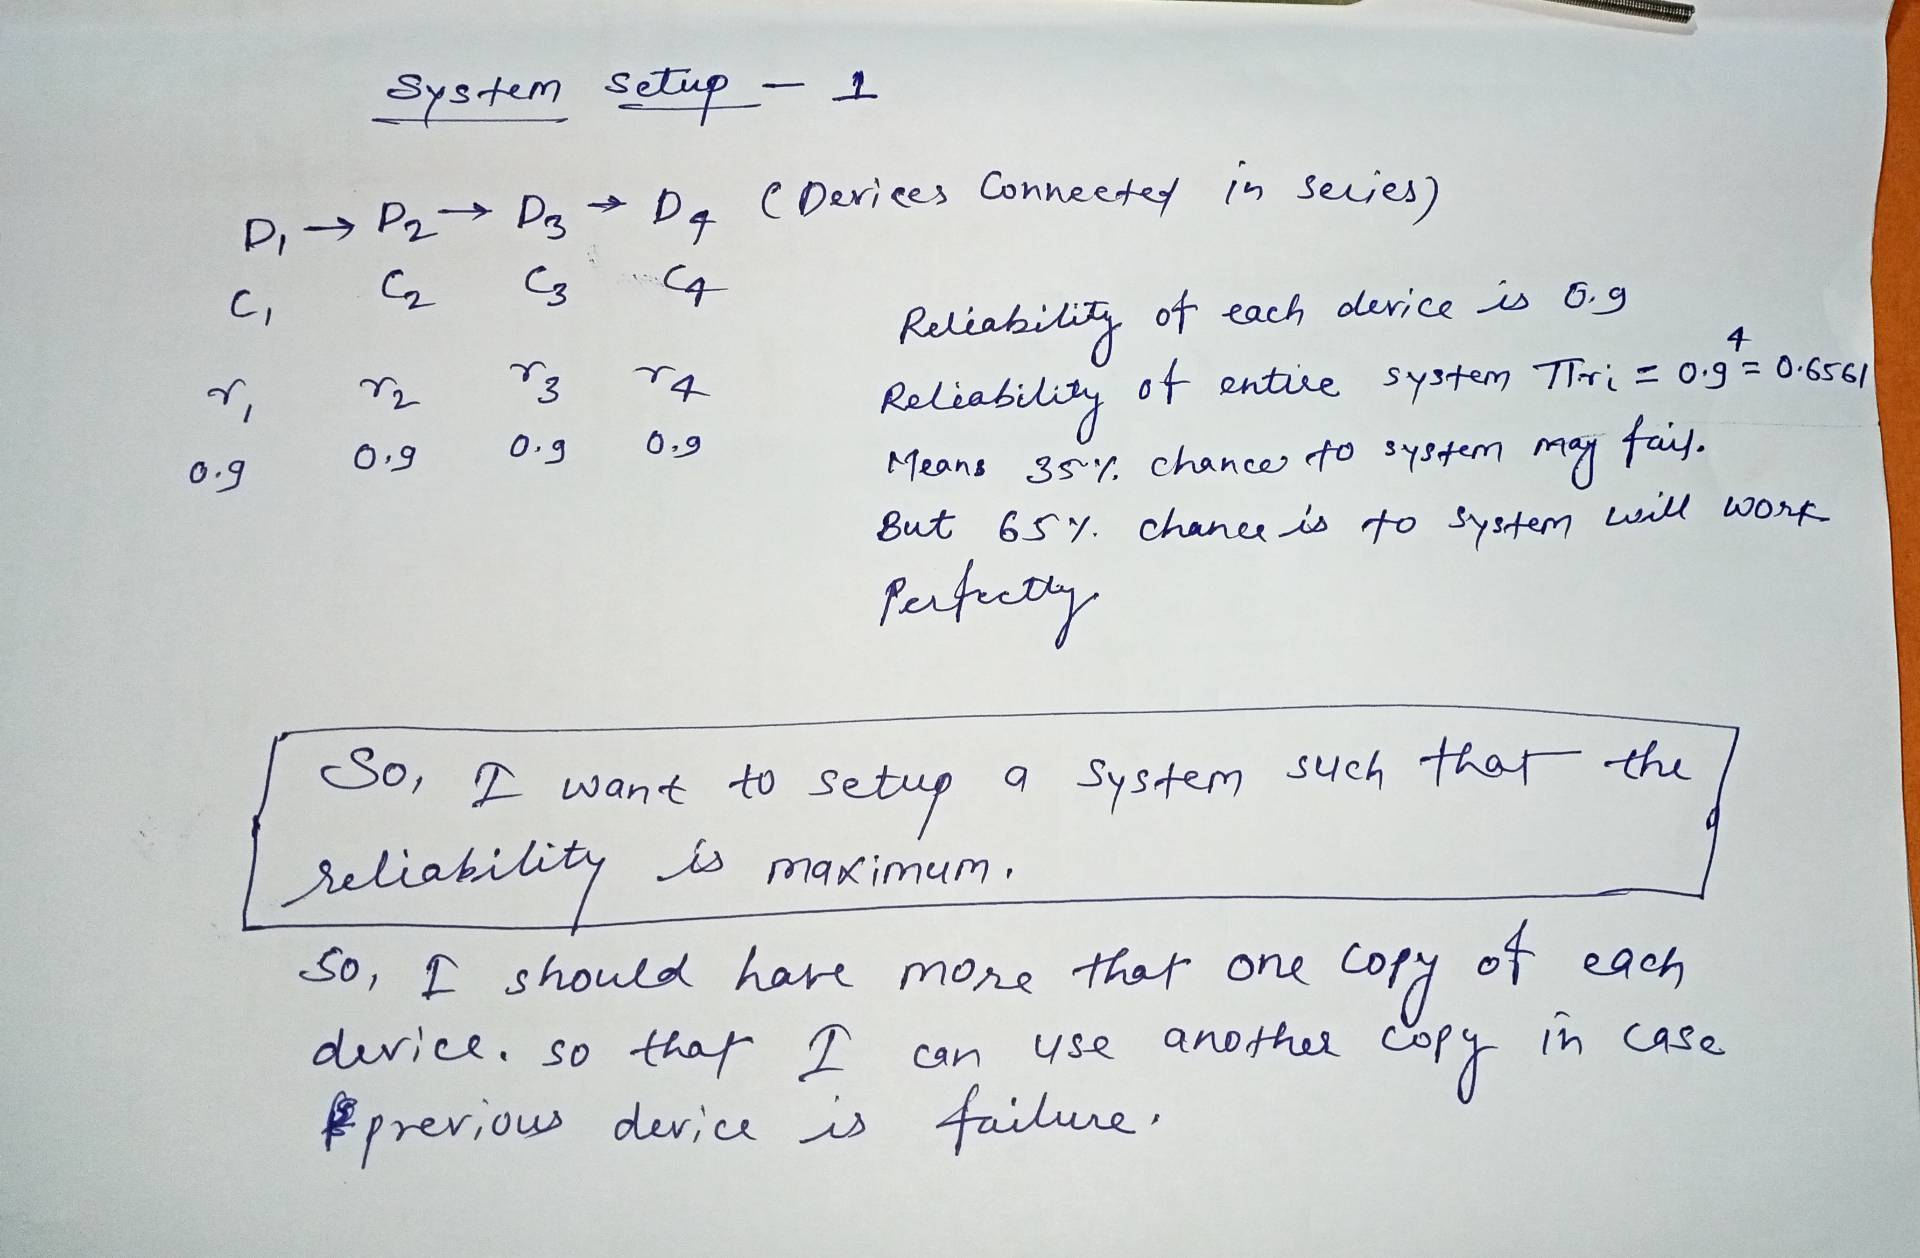 System Setup - 1
D₁ → D₂ → D₃ → D₄ (Devices Connected in series)
C₁ C₂ C₃ C₄
r₁ r₂ r₃ r₄
0.9 0.9 0.9 0.9
Reliability of each device is 0.9
Reliability of entire system πri = 0.9⁴ = 0.6561
Means 35% chances to system may fail.
But 65% chance is to system will work
Perfectly.
So, I want to setup a system such that the
reliability is maximum.
So, I should have more that one copy of each
device. so that I can use another copy in case
previous device is failure.